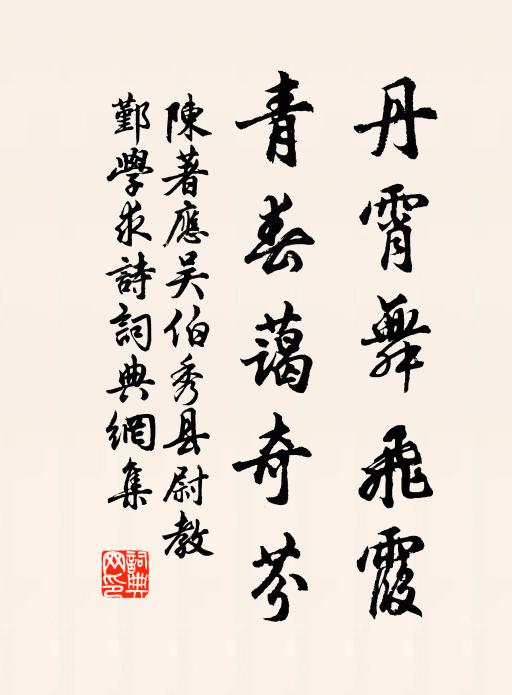 丹霄舞飛霞
青春藹奇芬
陳著應吴伯秀县尉教
鄞學求詩詞典網集
詞典网印